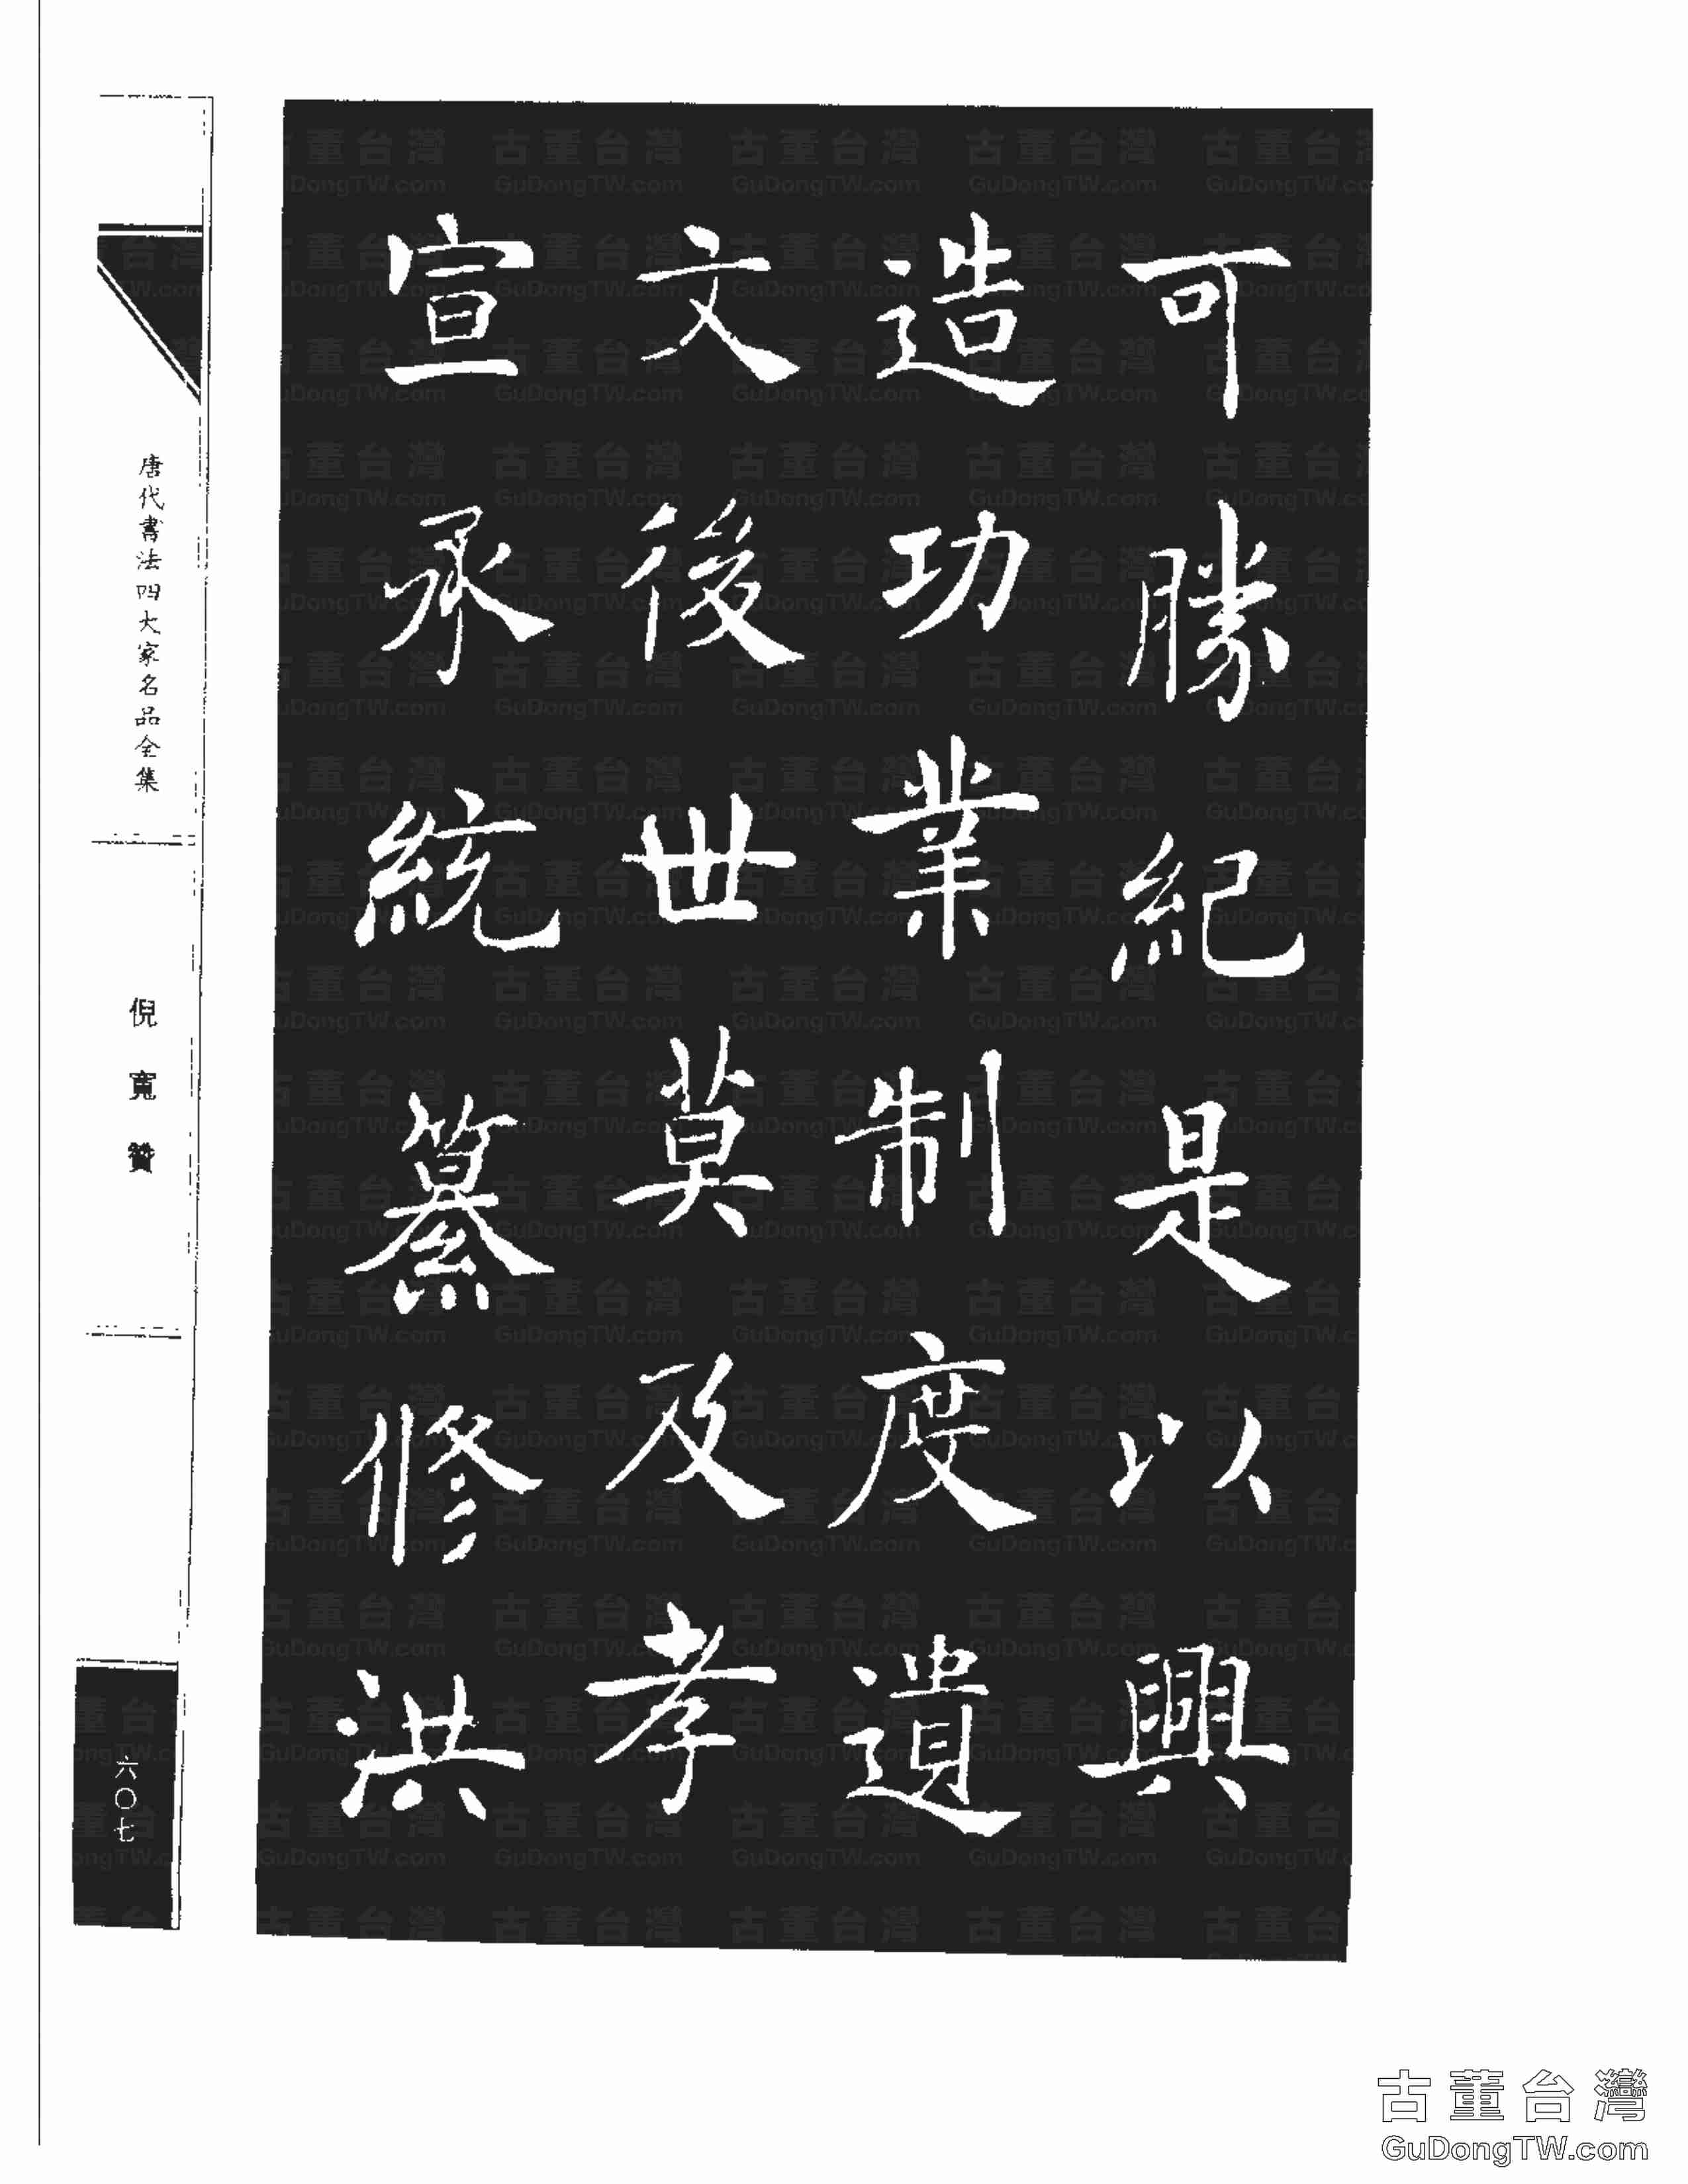 可勝紀是以興
造功業制度遺
文後世莫及孝
宣承統纂修洪
唐代書法四大家名品全集
倪寬贊
六〇七
古董台灣
GuDongTW.com